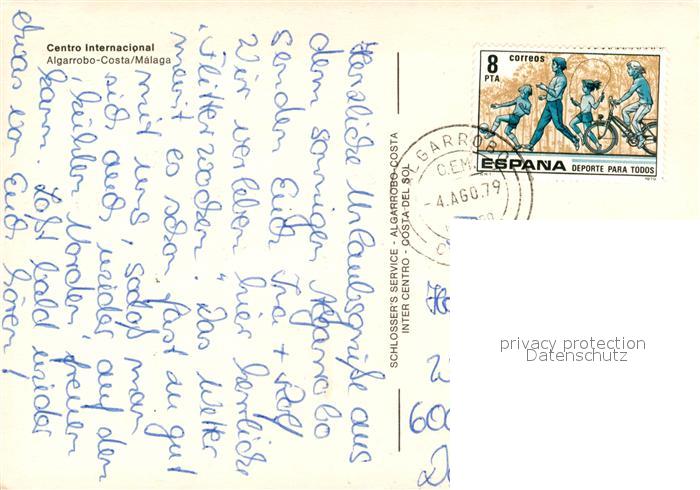 Centro Internacional
Algarrobo-Costa/Málaga
Herzliche Urlaubsgrüße aus
dem sonnigen Algarrobo
senden Euch Ina + Rolf
Wir verleben hier herrliche
"Flitterwochen." Das Wetter
meint es schon fast zu gut
mit uns, sodaß man
sich auch wieder auf den
kühlen Norden freuen
kann. Laßt bald wieder
etwas von Euch hören!
SCHLOSSER'S SERVICE - ALGARROBO-COSTA
INTER CENTRO - COSTA DEL SOL
8
PTA
correos
ESPAÑA DEPORTE PARA TODOS
1979
ALGARROB
-4.AGO.79
600
privacy protection
Datenschutz